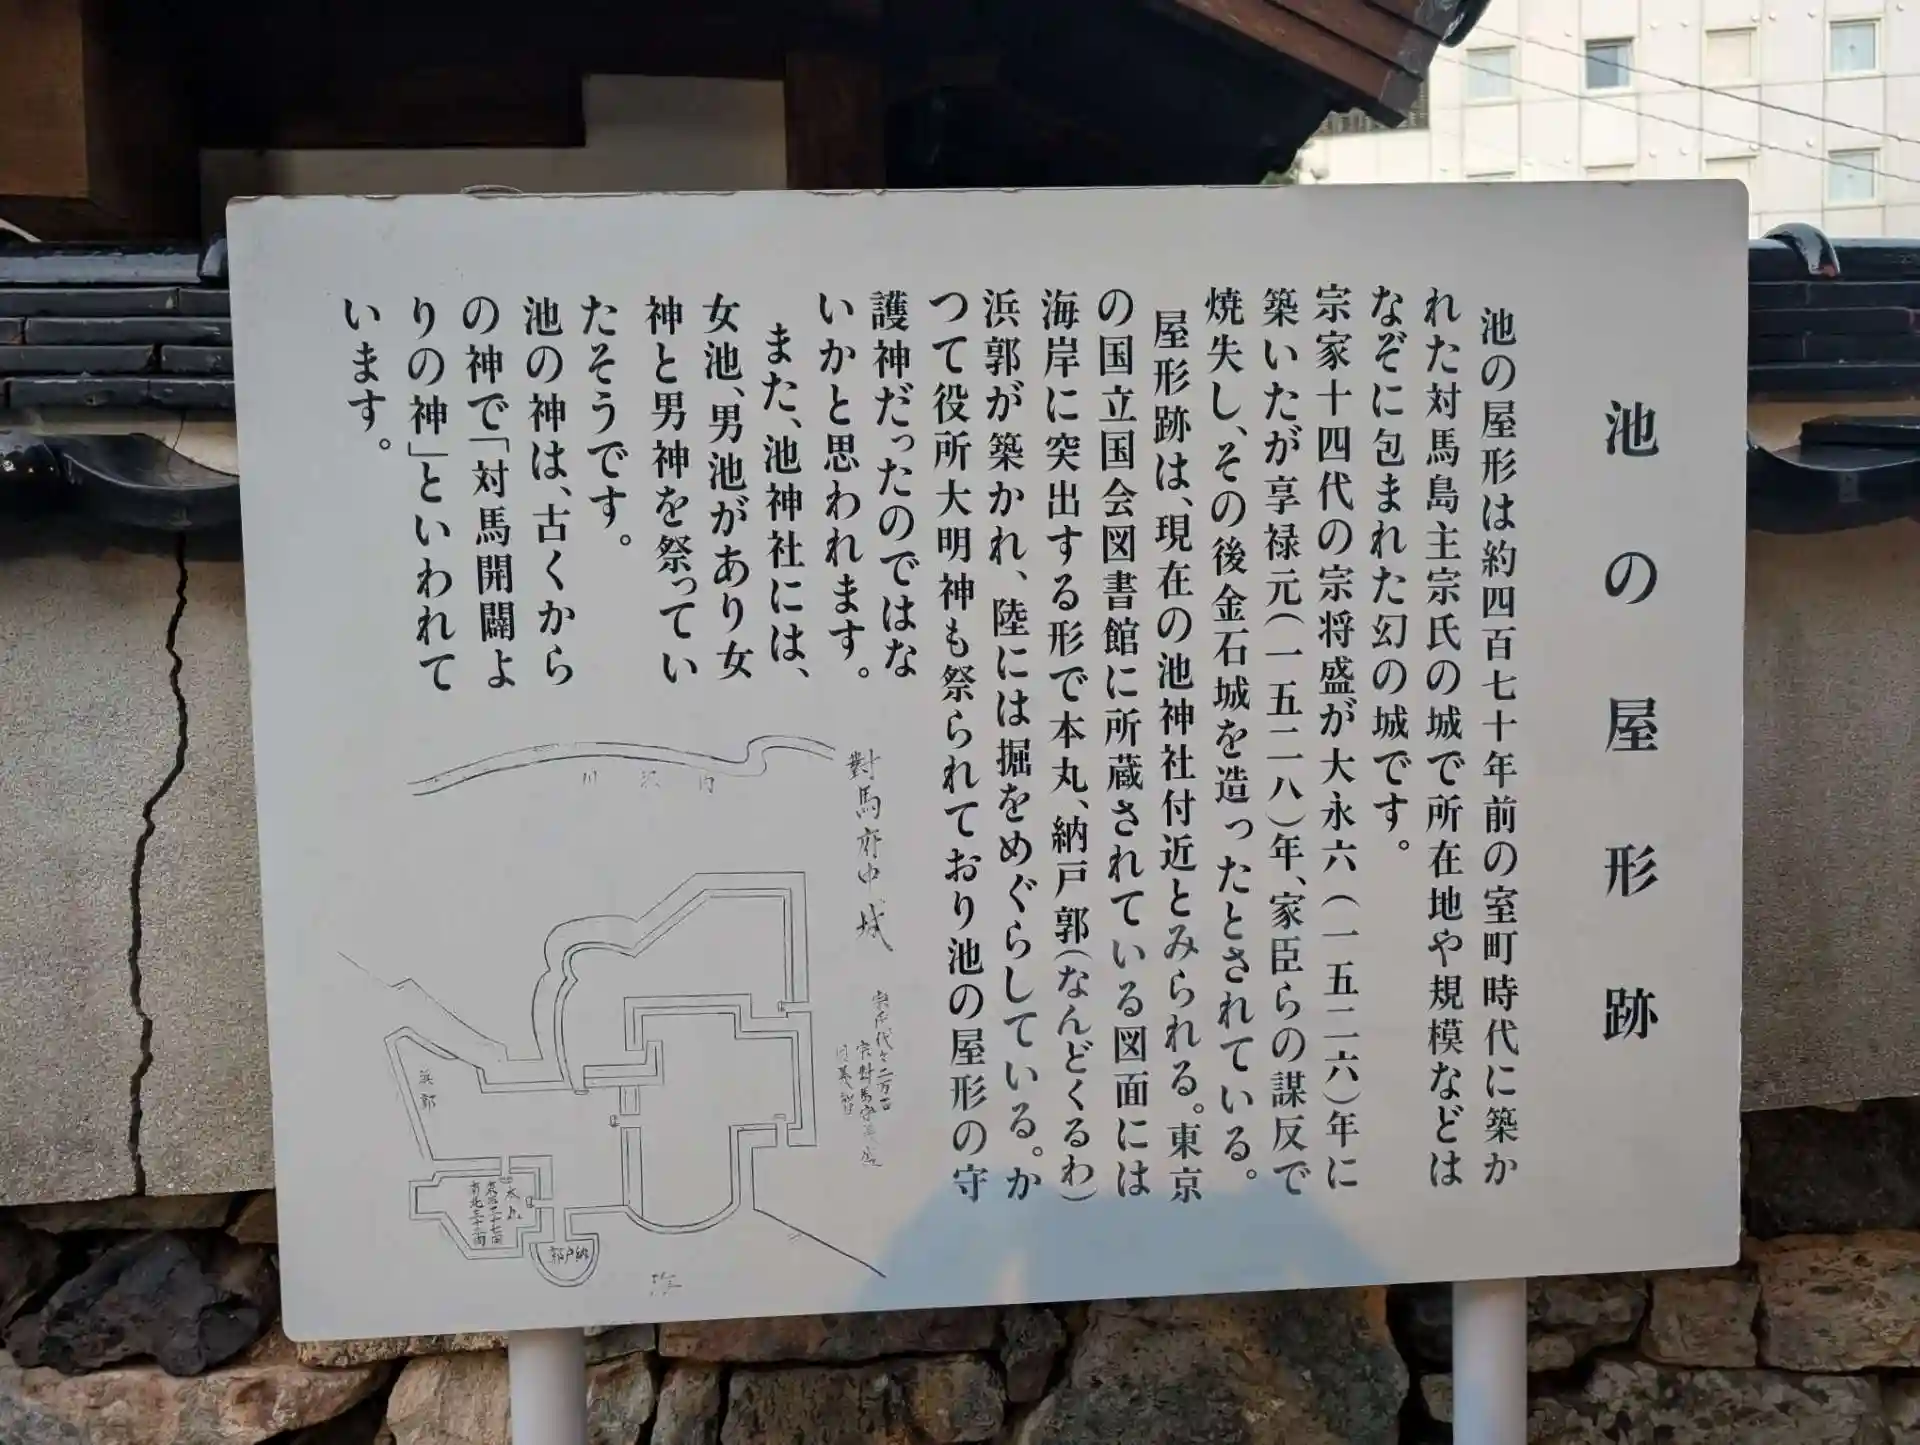 池の屋形跡
池の屋形は約四百七十年前の室町時代に築か
れた対馬島主宗氏の城で所在地や規模などは
なぞに包まれた幻の城です。
宗家十四代の宗将盛が大永六(一五二六)年に
築いたが享禄元(一五二八)年、家臣らの謀反で
焼失し、その後金石城を造ったとされている。
屋形跡は、現在の池神社付近とみられる。東京
の国立国会図書館に所蔵されている図面には
海岸に突出する形で本丸、納戸郭(なんどくるわ)
浜郭が築かれ、陸には掘をめぐらしている。か
つて役所大明神も祭られており池の屋形の守
護神だったのではな
いかと思われます。
また、池神社には、
女池、男池があり女
神と男神を祭ってい
たそうです。
池の神は、古くから
の神で「対馬開闢よ
りの神」といわれて
います。
對馬府中城
宗氏代々二万石
内沢川
浜郭
本丸
東西二十七間
南北三十二間
納戸郭